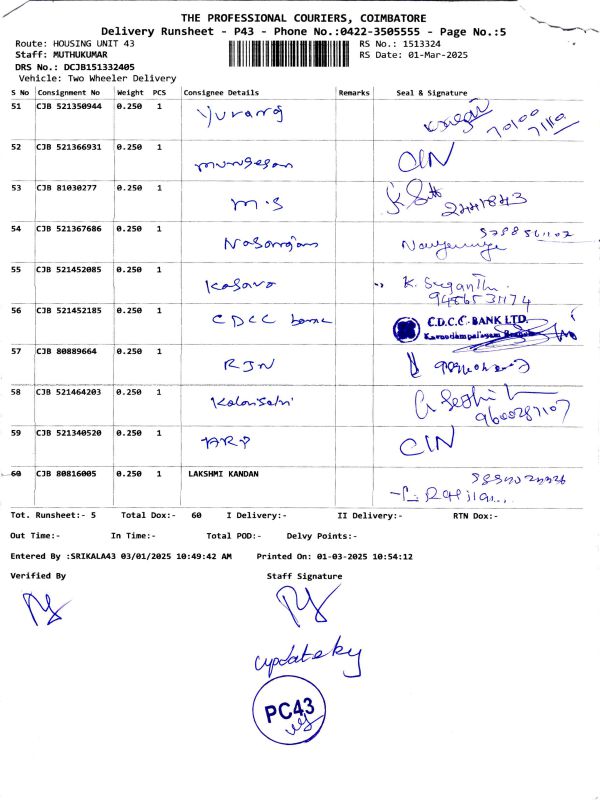 THE PROFESSIONAL COURIERS, COIMBATORE
Delivery Runsheet - P43 - Phone No.:0422-3505555 - Page No.:5
Route: HOUSING UNIT 43 RS No.: 1513324
Staff: MUTHUKUMAR RS Date: 01-Mar-2025
DRS No.: DCJB151332405
Vehicle: Two Wheeler Delivery
S No Consignment No Weight PCS Consignee Details Remarks Seal & Signature
51 CJB 521350944 0.250 1 Yuvaraj
52 CJB 521366931 0.250 1 murugesan CIN
53 CJB 81030277 0.250 1 m.s
54 CJB 521367686 0.250 1
55 CJB 521452085 0.250 1 K. Suganthi.
56 CJB 521452185 0.250 1 CDCC C.D.C.C. BANK LTD.
57 CJB 80889664 0.250 1 RJN
58 CJB 521464203 0.250 1 9600287107
59 CJB 521340520 0.250 1 ARP CIN
60 CJB 80816005 0.250 1 LAKSHMI KANDAN
Tot. Runsheet:- 5 Total Dox:- 60 I Delivery:- II Delivery:- RTN Dox:-
Out Time:- In Time:- Total POD:- Delvy Points:-
Entered By :SRIKALA43 03/01/2025 10:49:42 AM Printed On: 01-03-2025 10:54:12
Verified By Staff Signature
PC43